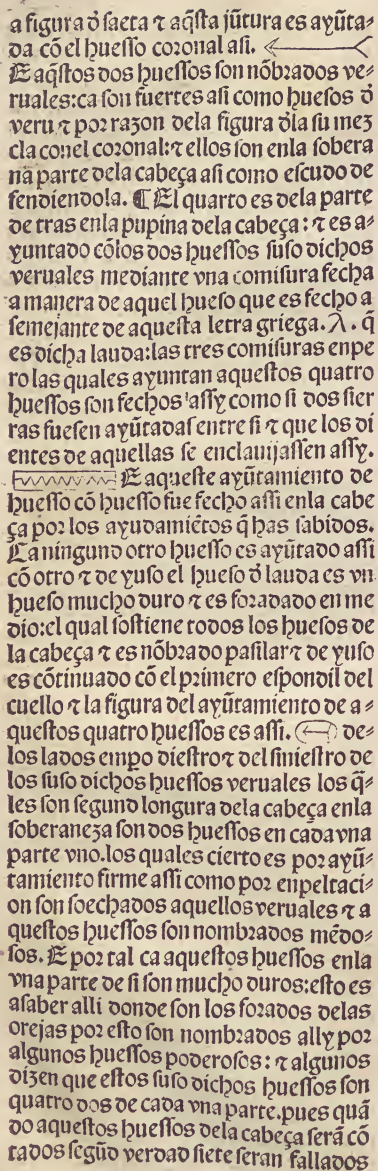 a figura ď saeta ⁊ aq̃sta jũtura es ayũta⸗
da cõ el huesso coronal asi.
E aq̃stos dos huessos son nõbrados ve⸗
ruales:ca son fuertes asi como huesos ď
veru ⁊ por razon dela figura ďla su mez
cla conel coronal:⁊ ellos son enla sobera
nã parte dela cabeça asi como escudo de
fendiendola. ¶ El quarto es dela parte
de tras enla pupina dela cabeça: ⁊ es a⸗
yuntado cõlos dos huessos suso dichos
veruales mediante vna comisura fecha
a manera de aquel hueso que es fecho a
semejante de aquesta letra griega. λ. q̃
es dicha lauda:las tres comisuras enpe
ro las quales ayuntan aquestos quatro
huessos son fechos assy como si dos sier
ras fuesen ayũtadas entre si ⁊ que los di
entes de aquellas se enclauijassen assy.
E aqueste ayũtamiento de
huesso cõ huesso fue fecho assi enla cabe
ça por los ayudamiẽtos q̃ has sabidos.
Ca ningund otro huesso es ayũtado assi
cõ otro ⁊ de yuso el hueso ď lauda es vn
hueso mucho duro ⁊ es foradado en me
dio:el qual sostiene todos los huesos de
la cabeça ⁊ es nõbrado pasilar ⁊ de yuso
es cõtinuado cõ el primero espondil del
cuello ⁊ la figura del ayũtamiento de a⸗
questos quatro huessos es assi. de⸗
los lados empo diestro ⁊ del siniestro de
los suso dichos huessos veruales los q̃⸗
les son segund longura dela cabeça enla
soberaneza son dos huessos en cada vna
parte vno.los quales cierto es por ayũ⸗
tamiento firme assi como por enpeltaci⸗
on son soechados aquellos veruales ⁊ a
questos huessos son nombrados mẽdo⸗
sos. E por tal ca aquestos huessos enla
vna parte de si son mucho duros:esto es
asaber alli donde son los forados delas
orejas por esto son nombrados ally por
algunos huessos poderosos: ⁊ algunos
dizen que estos suso dichos huessos son
quatro dos de cada vna parte.pues quã
do aquestos huessos dela cabeça serã cõ
tados segũd verdad siete seran fallados